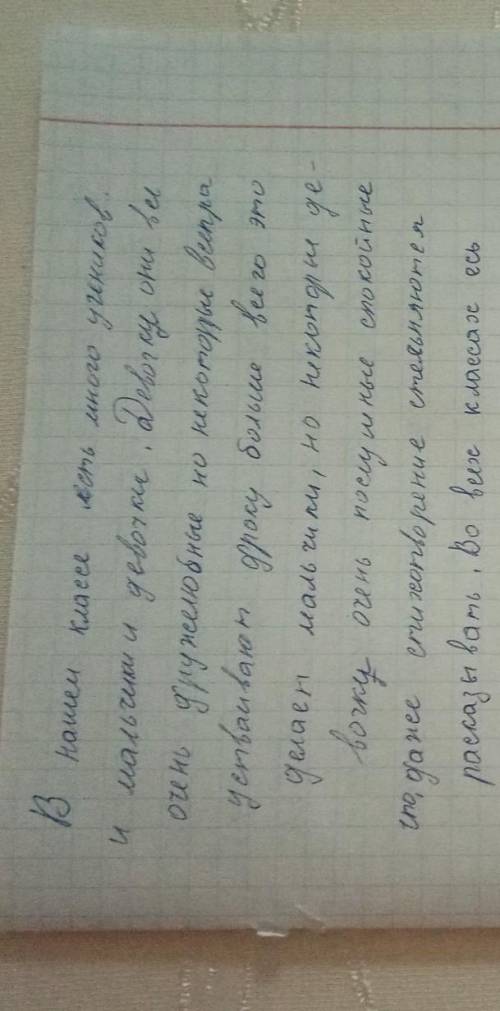 В нашем классе есть много учеников.
и мальчики и девочки. Девочки они все
очень дружелюбные но некоторые
устваивают драку больше всего это
делает мальчики, но некоторые де-
вочки очень послушные спокойные
что, даже стихотворение стесьняютем
расказывать. Во всех классах есь